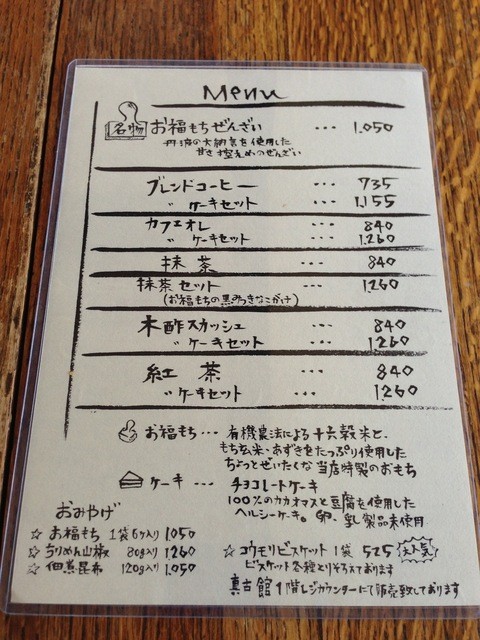 Menu
名物 お福もちぜんざい ... 1.050
丹波の大納言を使用した
甘さ控えめのぜんざい
ブレンドコーヒー ... 735
〃 ケーキセット ... 1,155
カフェオレ ... 840
〃 ケーキセット ... 1.260
抹茶 ... 840
抹茶セット ... 1260
(お福もちの黒みつきなこがけ)
木酢スカッシュ ... 840
〃 ケーキセット ... 1260
紅茶 ... 840
〃 ケーキセット ... 1260
お福もち ... 有機農法による十六穀米と、
もち玄米・あずきをたっぷり使用した
ちょっとぜいたくな当店特製のおもち
ケーキ ... チョコレートケーキ
100%のカカオマスと豆腐を使用した
ヘルシーケーキ。卵、乳製品未使用
おみやげ
☆ お福もち 1袋6ヶ入り 1.050
☆ ちりめん山椒 80g入り 1260
☆ 佃煮昆布 120g入り 1.050
☆ コウモリビスケット 1袋 525 大人気
ビスケット各種とりそろえております
真古館1階レジカウンターにて販売致しております